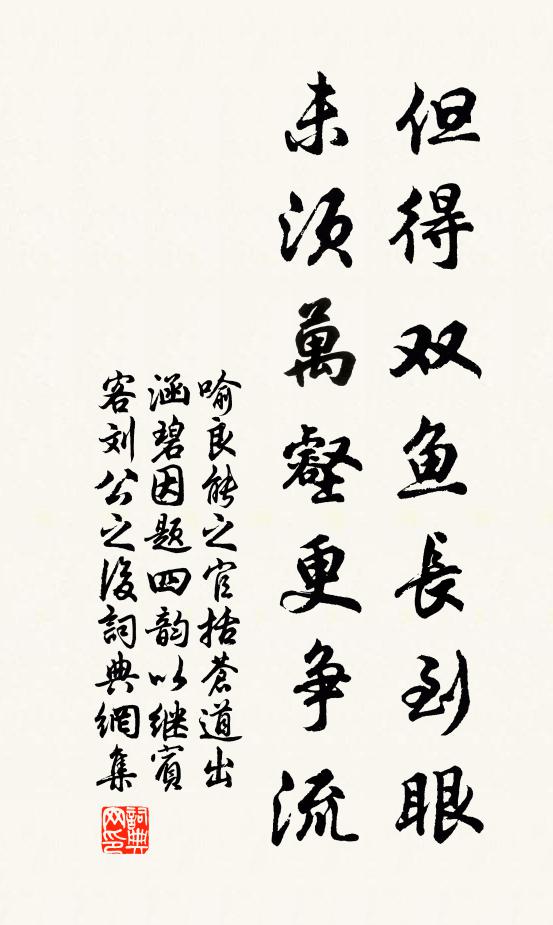 但得双鱼長到眼
未须萬壑更争流
喻良能之官括苍道出
涵碧因题四韵以继賓
客刘公之後詞典網集
詞典网印